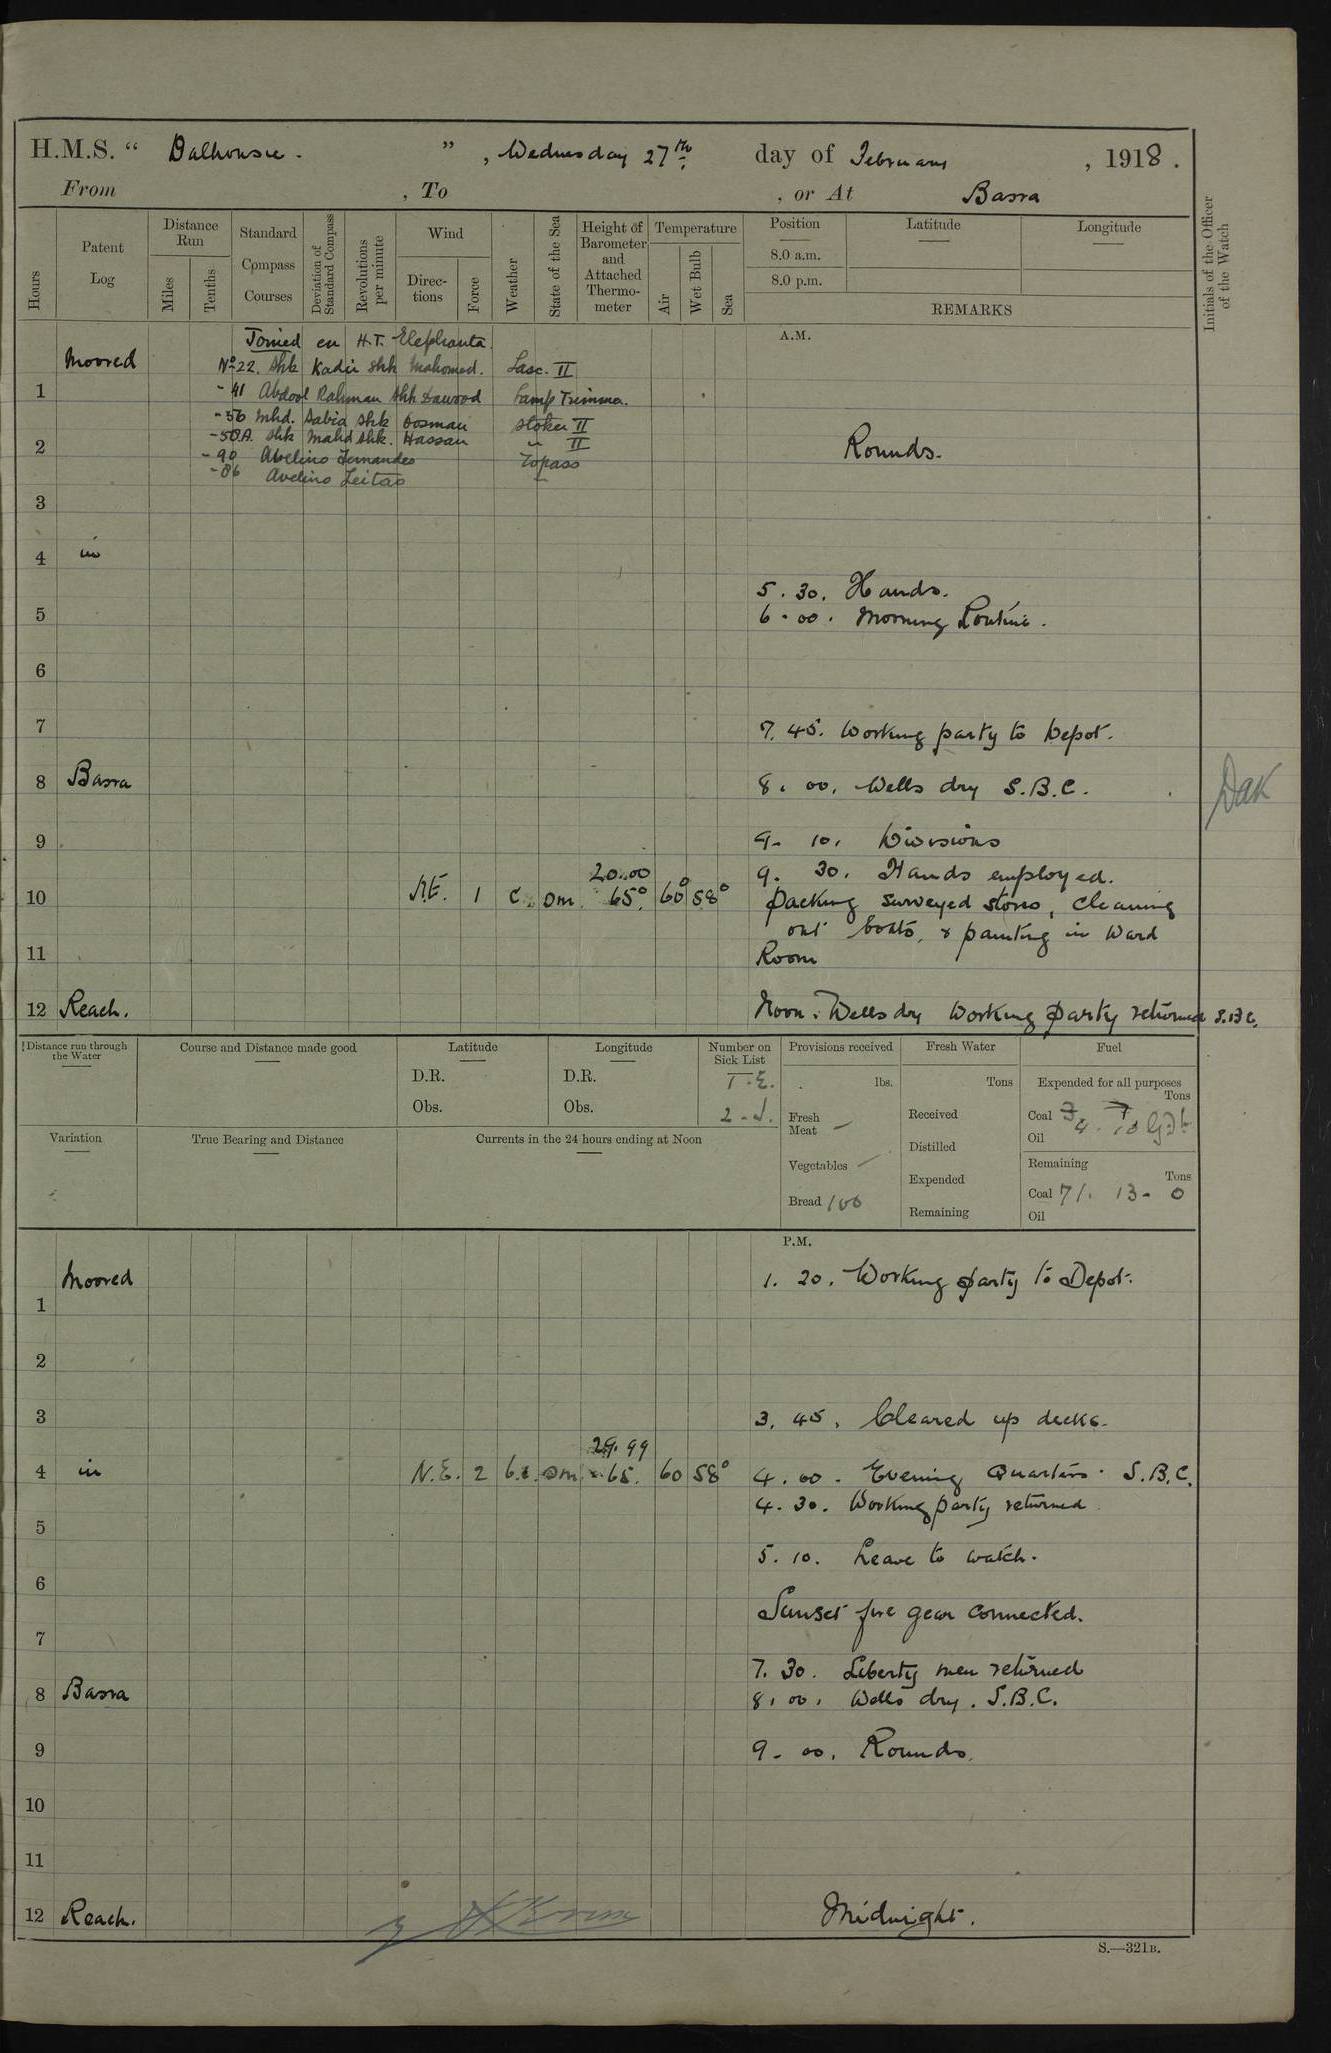 H.M.S. “ Dalhousie. ” , Wednesday 27th day of February , 1918.
From , To , or At Basra
Hours
Patent Log
Distance Run
Miles
Tenths
Standard Compass Courses
Deviation of Standard Compass
Revolutions per minute
Wind
Direc-tions
Force
Weather
State of the Sea
Height of Barometer and Attached Thermo-meter
Temperature
Air
Wet Bulb
Sea
Position
8.0 a.m.
8.0 p.m.
Latitude
Longitude
REMARKS
Initials of the Officer of the Watch
A.M.
Joined ex H.T. Elephanta.
Moored
No 22. Shk Kadir Shk Mahomed. Lasc. II
1
- 41 Abdool Rahman Shk Dawood Lamp Trimmer.
- 56 Mhd. Sabia Shk Oosman Stoker II
- 50A. Shk Mahd Shk. Hassan " II
2 Rounds.
- 90 Abelino Fernandes Topass
- 86 Avelino Leitao "
3
4 in
5. 30. Hands.
5
6. 00. Morning Routine.
6
7
7. 45. Working party to Depot.
8 Basra 8. 00. Wells dry S.B.C.
DAK
9
9. 10. Divisions
9. 30. Hands employed.
10 N.E. 1 c. sm. 20.00 65° 60° 58° packing surveyed stores, cleaning
out boats, & painting in Ward
11 Room
12 Reach. Noon. Wells dry Working party returned S.B.C.
Distance run through the Water
Course and Distance made good
Latitude
D.R.
Obs.
Longitude
D.R.
Obs.
Number on Sick List
2 - J.
Provisions received
lbs.
Fresh Meat —
Vegetables —
Bread 100
Fresh Water
Tons
Received
Distilled
Expended
Remaining
Fuel
Expended for all purposes
Tons
Coal
Oil
Remaining
Tons
Coal 71. 13 - 0
Oil
Variation
True Bearing and Distance
Currents in the 24 hours ending at Noon
P.M.
Moored 1. 20. Working party to Depot.
1
2
3 3. 45. Cleared up decks.
4 in N.E. 2 b.c. sm. 29.99 65. 60 58° 4. 00. Evening Quarters. S.B.C.
4. 30. Working party returned
5
5. 10. Leave to watch.
6
Sunset fire gear connected.
7
7. 30. Liberty men returned
8 Basra 8. 00. Wells dry. S.B.C.
9 9. 00. Rounds.
10
11
12 Reach. Midnight.
S.—321B.